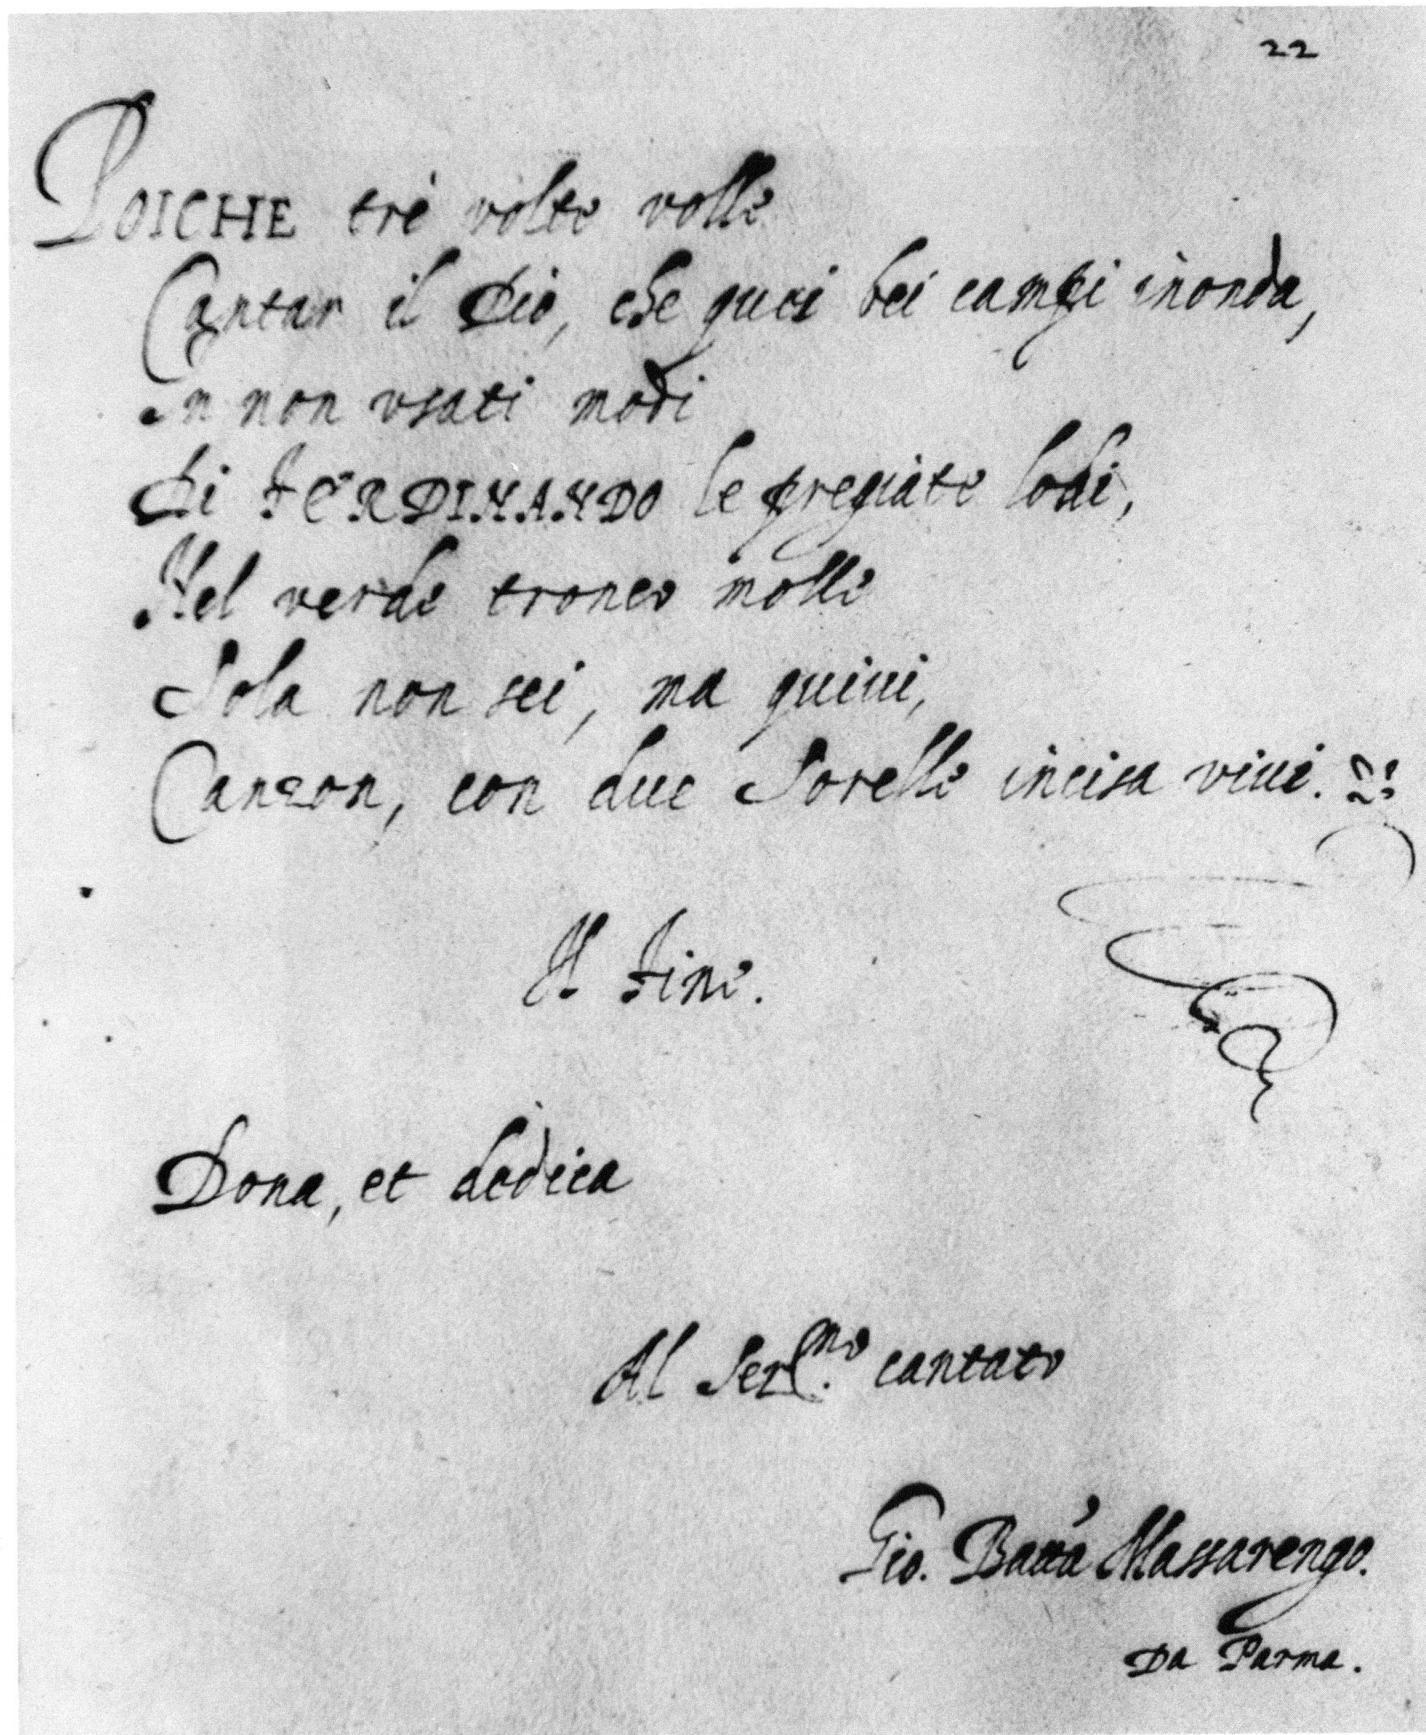 22
POICHE tre volte volle
Cantar il Dio, che quei bei campi inonda,
In non vsati modi
Di FERDINANDO le pregiate lodi,
Nel verde tronco molle
Sola non sei, ma quiui,
Canzon, con due Sorelle incisa viui.
Il Fine.
Dona, et dedica
Al Ser.mo cantato
Gio. Batta Massarengo.
Da Parma.